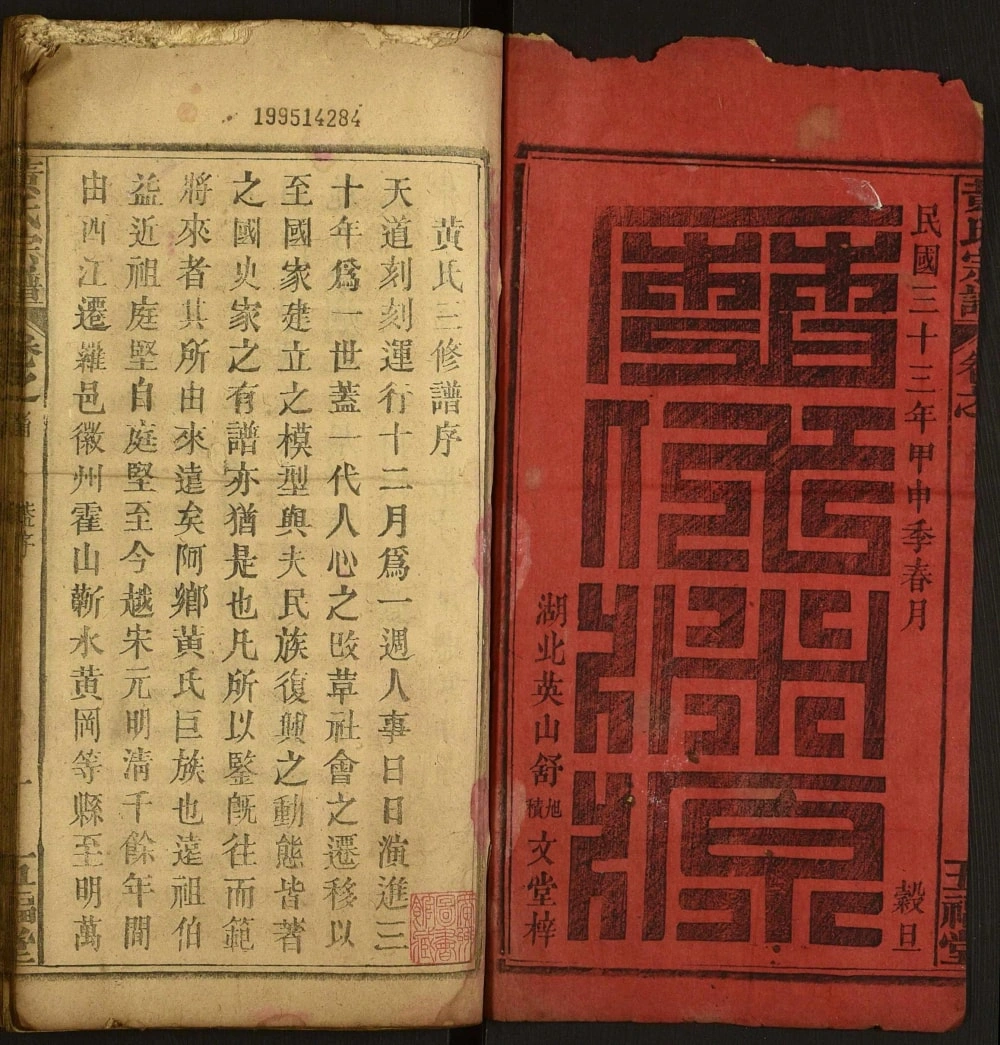 黃氏宗譜 卷之
五福堂
民國三十三年甲申季春月 穀旦
湖北英山舒旭積文堂梓
199514284
黃氏三修譜序
天道刻刻運行十二月爲一週人事日日演進三
十年爲一世蓋一代人心之改草社會之遷移以
至國家建立之模型與夫民族復興之動態皆著
之國史家之有譜亦猶是也凡所以鑒旣往而範
將來者其所由來遠矣阿鄉黃氏巨族也遠祖伯
益近祖庭堅自庭堅至今越宋元明淸千餘年間
由西江遷羅邑徽州霍山蘄水黃岡等縣至明萬
黃氏宗譜 卷之首 一 五福堂